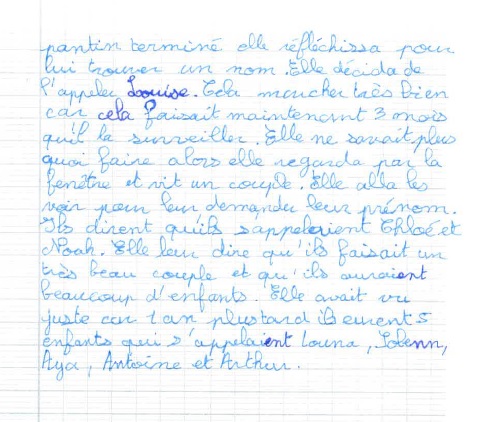 pantin terminé elle réfléchissa pour
lui trouver un nom. Elle décida de
l'appeler Louise. Cela marcher très bien
car cela faisait maintenant 3 mois
qu'il la surveiller. Elle ne savait plus
quoi faire alors elle regarda par la
fenêtre et vit un couple. Elle alla les
voir pour leur demander leur prénom.
Ils dirent qu'ils s'appelaient Chloé et
Noah. Elle leur dire qu'ils faisait un
très beau couple et qu'ils auraient
beaucoup d'enfants. Elle avait vu
juste car 1 an plus tard ils eurent 5
enfants qui s'appelaient Louna, Solenn,
Aya, Antoine et Arthur.